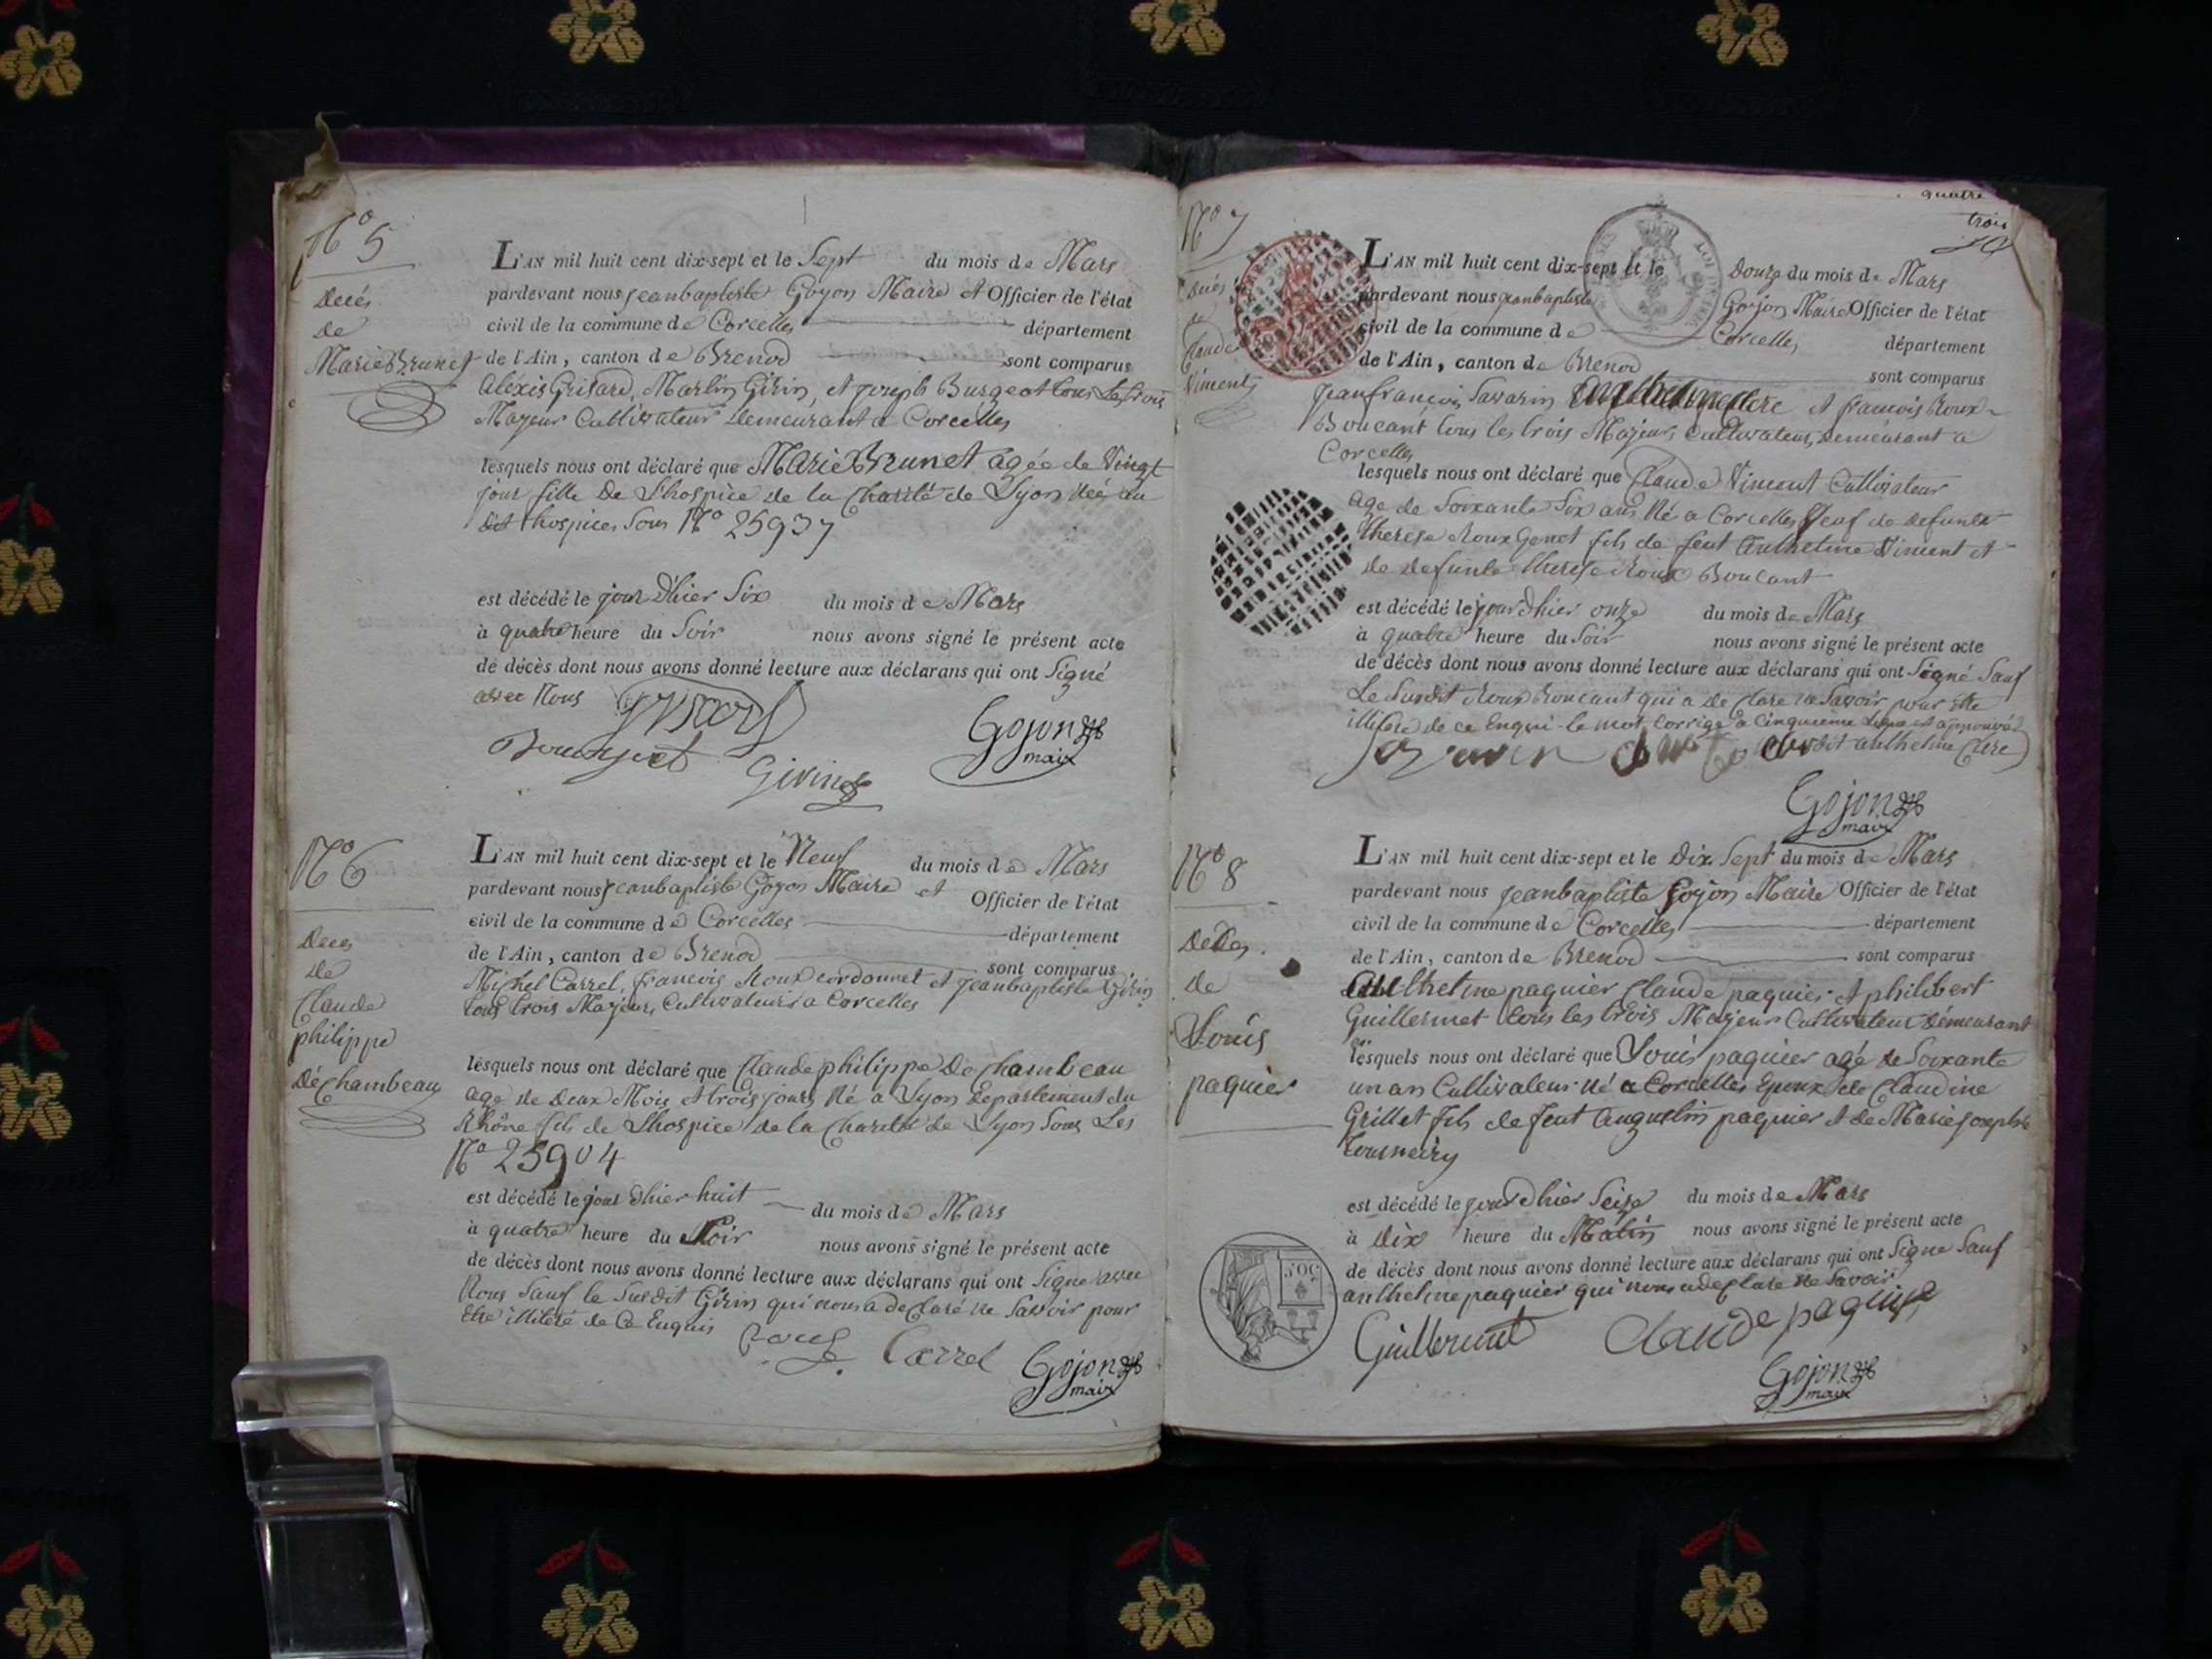 N° 5
Décés
de
Marie Brunet
L'AN mil huit cent dix-sept et le Sept du mois de Mars
pardevant nous jeanbaptiste Gojon Maire et Officier de l'état
civil de la commune de Corcelles département
de l'Ain, canton de Brenod sont comparus
Alexis Grisard, Martin Girin, et joseph Burgeot tous les trois
Majeur Cultivateur demeurant a Corcelles
lesquels nous ont déclaré que Marie Brunet agée de Vingt
jour fille de L'hospice de la Charité de Lyon Née au
dit hospices Sous N° 25937
est décédé le jour D'hier Six du mois de Mars
à quatre heure du Soir nous avons signé le présent acte
de décès dont nous avons donné lecture aux déclarans qui ont Signé
avec Nous
Gojon
maire
Girin
N° 6
Deces
de
Claude
philippe
Déchambeau
L'AN mil huit cent dix-sept et le Neuf du mois de Mars
pardevant nous jeanbaptiste Gojon Maire et Officier de l'état
civil de la commune de Corcelles département
de l'Ain, canton de Brenod sont comparus
Michel Carrel, francois Roux cordonnet et jeanbaptiste Girin
tous trois Majeur, Cultivateurs a Corcelles
lesquels nous ont déclaré que Claude philippe De Chambeau
age de deux Mois et trois jours Né a Lyon Departement du
Rhône fils de L'hospice de la Charité de Lyon Sous Les
N° 25904
est décédé le jour d'hier huit du mois de Mars
à quatre heure du Soir nous avons signé le présent acte
de décès dont nous avons donné lecture aux déclarans qui ont Signe avec
Nous Sauf le Susdit Girin qui nous a declaré ne Savoir pour
Etre illiteré de Ce Enquis
Roux Carrel Gojon
maire
quatre
trois
N° 7
Décés
de
Claude
Viment
L'AN mil huit cent dix-sept et le Douze du mois de Mars
pardevant nous jeanbaptiste Gojon Maire Officier de l'état
civil de la commune de Corcelles département
de l'Ain, canton de Brenod sont comparus
jeanfrançois Savarin Anthelme Clerc et francois Roux
Boucant tous les trois Majeur, Cultivateur, demeurant a
Corcelles
lesquels nous ont déclaré que Claude Viment Cultivateur
age de Soixante Six ans Né a Corcelles Veuf de defunte
therese Roux Genot fils de feut Anthelme Viment et
de defunte therese Roux Boucant
est décédé le jour d'hier onze du mois de Mars
à quatre heure du Soir nous avons signé le présent acte
de décès dont nous avons donné lecture aux déclarans qui ont Signé Sauf
Le Susdit Roux Boucant qui a declare ne Savoir pour Etre
illiteré de ce Enqui le mot Corrigé a Cinquieme Ligne est approuvé
Savarin dit anthelme Clerc
Gojon
maire
N° 8
Deces
de
Louis
paquier
L'AN mil huit cent dix-sept et le Dix Sept du mois de Mars
pardevant nous jeanbaptiste Gojon Maire Officier de l'état
civil de la commune de Corcelles département
de l'Ain, canton de Brenod sont comparus
Anthelme paquier Claude paquier et philibert
Guillermet tous les trois Majeur Cultivateur demeurant
lesquels nous ont déclaré que Louis paquier agé de Soixante
un an Cultivateur né a Corcelles Epoux de Claudine
Grillet fils de feut Augustin paquier et de Marie josephte
est décédé le jour d'hier Seize du mois de Mars
à Dix heure du Matin nous avons signé le présent acte
de décès dont nous avons donné lecture aux déclarans qui ont Signe Sauf
anthelme paquier qui nous a declare ne Savoir
Guillermet Claude paquier
Gojon
maire
50C